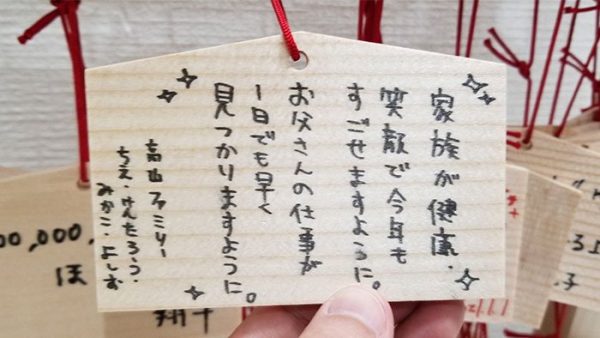 家族が健康・
笑顔で今年も
すごせますように。
お父さんの仕事が
1日でも早く
見つかりますように。
高山ファミリー
ちえ・けんたろう・
みかこ・よしお
00,000,
ほ